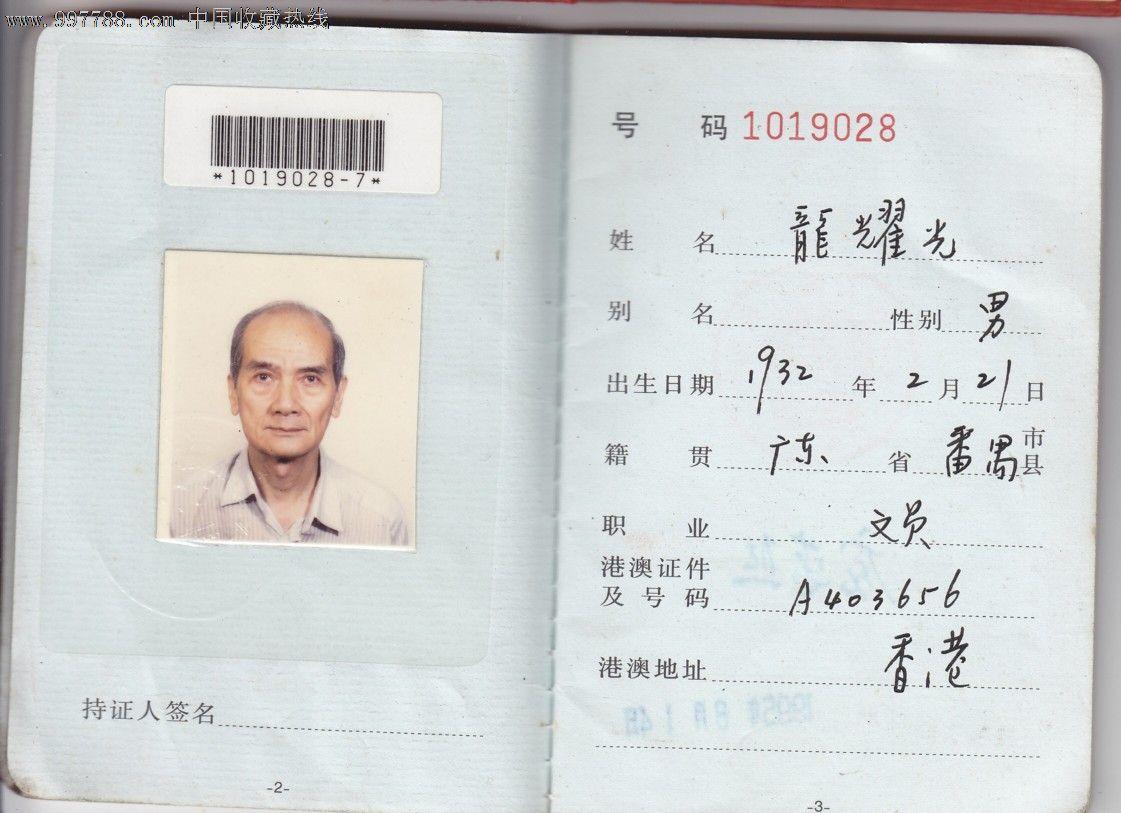 www.997788.com 中国收藏热线
*1019028-7*
持证人签名
-2-
号 码 1019028
姓 名 龍耀光
别 名 性别 男
出生日期 1932 年 2 月 21 日
籍 贯 广东 省 番禺 市县
职 业 文员
港澳证件
及号码 A403656
港澳地址 香港
-3-